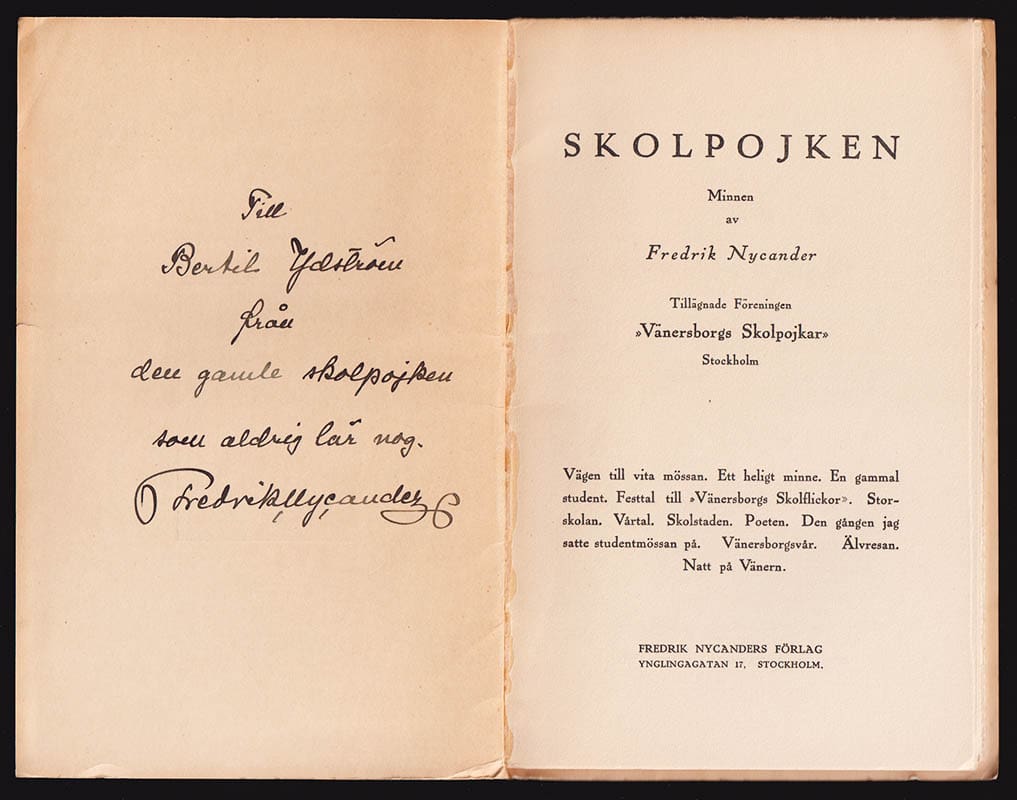 Till
Bertil Ydström
från
den gamle skolpojken
som aldrig lär nog.
Fredrik Nycander
SKOLPOJKEN
Minnen
av
Fredrik Nycander
Tillägnade Föreningen
»Vänersborgs Skolpojkar»
Stockholm
Vägen till vita mössan. Ett heligt minne. En gammal
student. Festtal till »Vänersborgs Skolflickor». Stor-
skolan. Vårtal. Skolstaden. Poeten. Den gången jag
satte studentmössan på. Vänersborgsvår. Älvresan.
Natt på Vänern.
FREDRIK NYCANDERS FÖRLAG
YNGLINGAGATAN 17, STOCKHOLM.